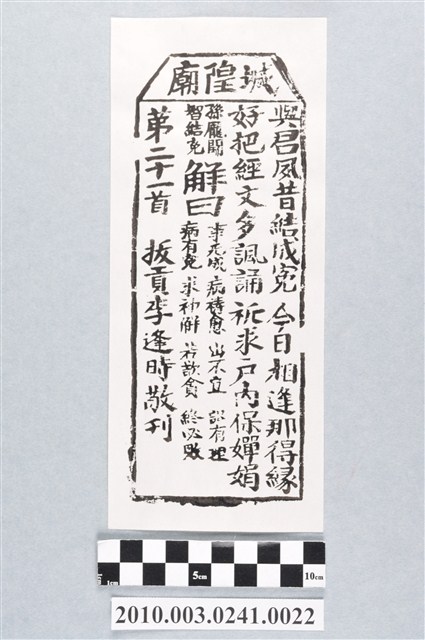 城隍廟
與君夙昔結成冤 今日相逢那得緣
好把經文多諷誦 祈求戶內保嬋娟
孫龐鬪
智結冤
解曰
病待愈 出不立 訟有理
病有冤 求神解 若欺貪 終必敗
第二十一首 拔貢李逢時敬刊
1cm 5cm 10cm
2010.003.0241.0022